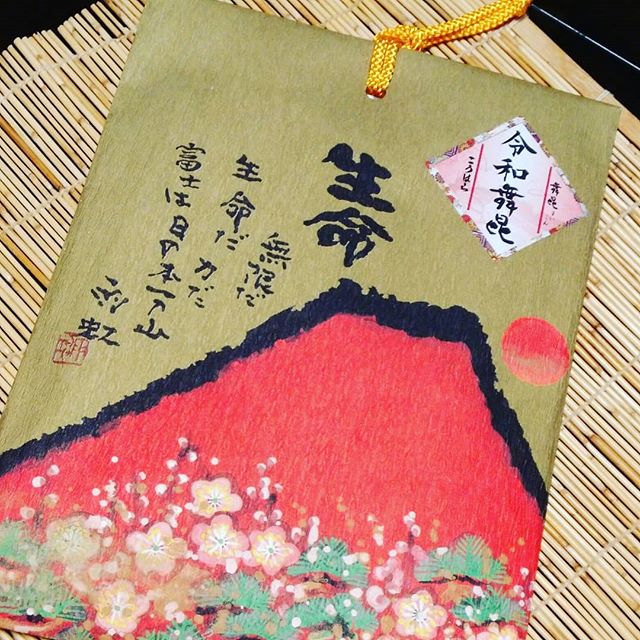 舞昆の
令和舞昆
こうはら
生命
無限だ
生命だ 力だ
富士は日の本一の山